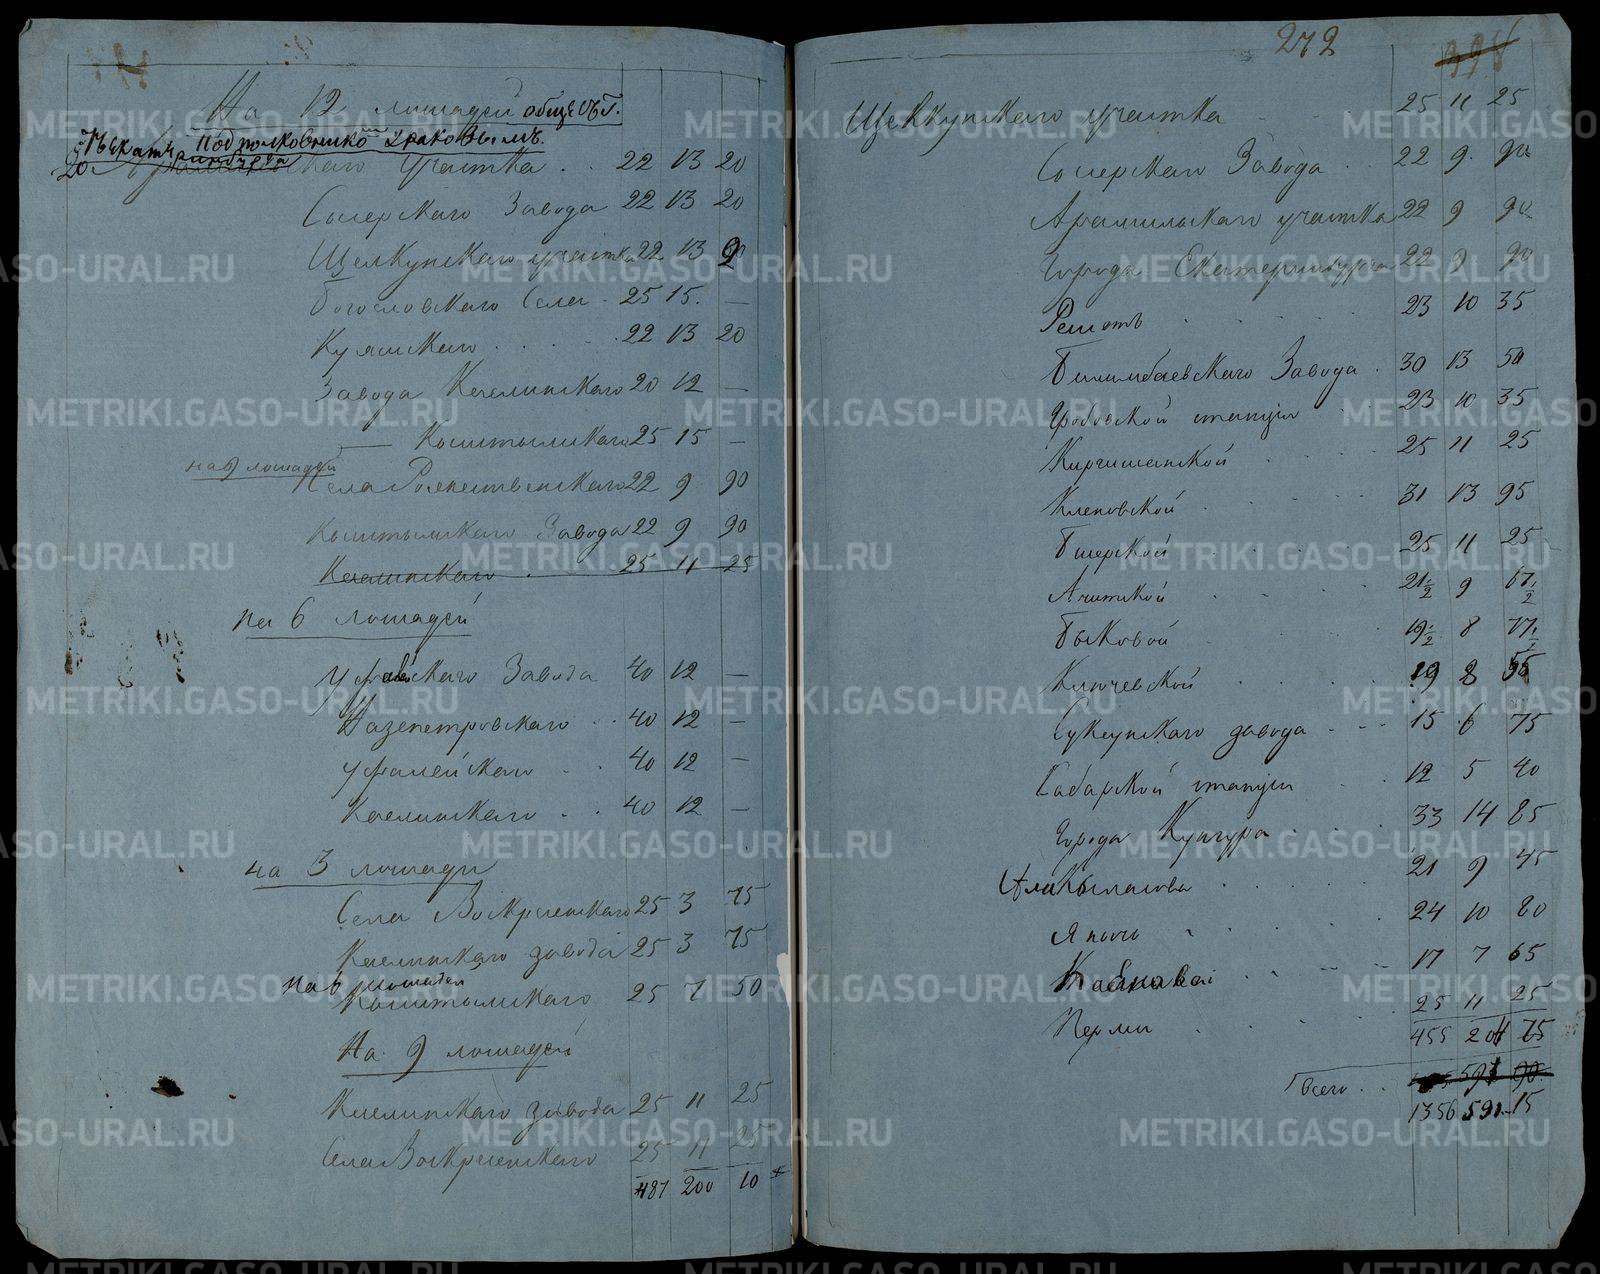 На 12 лошадей общест.
Подполковником Яковлевымъ.
20
участка . . 22 13 20
Сысерскаго Завода 22 13 20
Щелкунскаго участка 22 13 20
Богословскаго Села . 25 15. —
Куяшскаго . . . . 22 13 20
Завода Каслинскаго 20 12 —
— Кыштымскаго 25 15 —
на 9 лошадей
Села Рожественскаго 22 9 90
Кыштымскаго Завода 22 9 90
Каслинскаго . 25 11 25
на 6 лошадей
Завода 40 12 —
Назепетровскаго . . 40 12 —
Уфалейскаго . . 40 12 —
Каслинскаго . . 40 12 —
на 3 лошади
Села Воскресенскаго 25 3 75
Каслинскаго завода 25 3 75
на 6 лошадей
Кыштымскаго 25 7 50
На 9 лошадей
Каслинскаго завода 25 11 25
Села Воскресенскаго 25 11 25
487 200 10
272
Щелкунскаго участка . . 25 11 25
Сысерскаго Завода . 22 9. 90
Арамильскаго участка 22 9 90
Города Екатеринбурга 22 9 90
Решотъ . . . . . 23 10 35
Билимбаевскаго Завода . 30 13 50
Гробовской станции . 23 10 35
Киргишанской . . . . 25 11 25
Кленовской . . . . 31 13 95
Бисерской . . . . 25 11 25
Ачитской . . . 21½ 9 67½
Быковой . . . . 19½ 8 77½
Ключевской . . . . 19 8 55
Суксунскаго завода . . . 15 6 75
Сабарской станции . 12 5 40
Города Кунгура . . . 33 14 85
. . . . 21 9 45
. . . . 24 10 80
. . . . 17 7 65
Перми . . . . 25 11 25
455 204 75
Всего . . 1356 591 15
METRIKI.GASO-URAL.RU